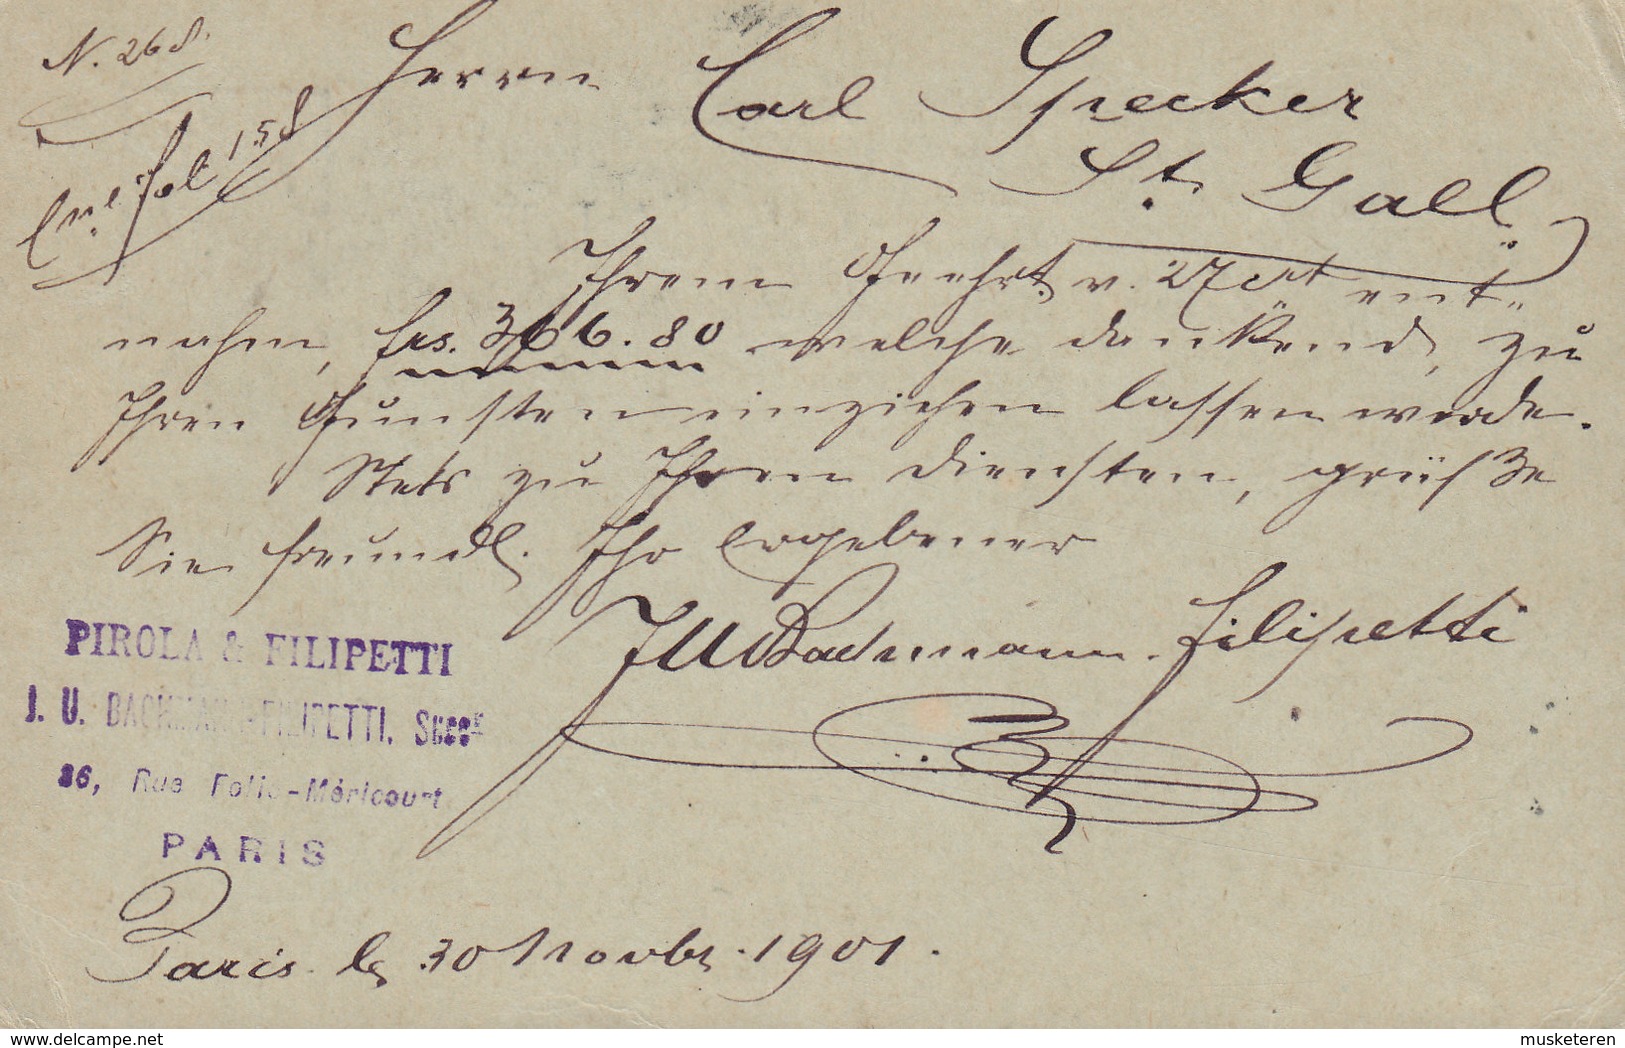 N. 268.
fol 158
Herrn Carl Specker
St. Gall.
Ihrem Geehrt. v. 27 crt ent-
nahm, frs. 366.80 welche dankend, zu
Ihren Gunsten einziehen lassen werde.
Stets zu Ihren Diensten, grüße
Sie freundl. Ihr Ergebener
J U Bachmann-Filipetti
PIROLA & FILIPETTI
J. U. BACHMANN-FILIPETTI, Succr
36, Rue Folie-Méricourt
PARIS
Paris le 30 Novbr. 1901.
www.delcampe.net
musketeren